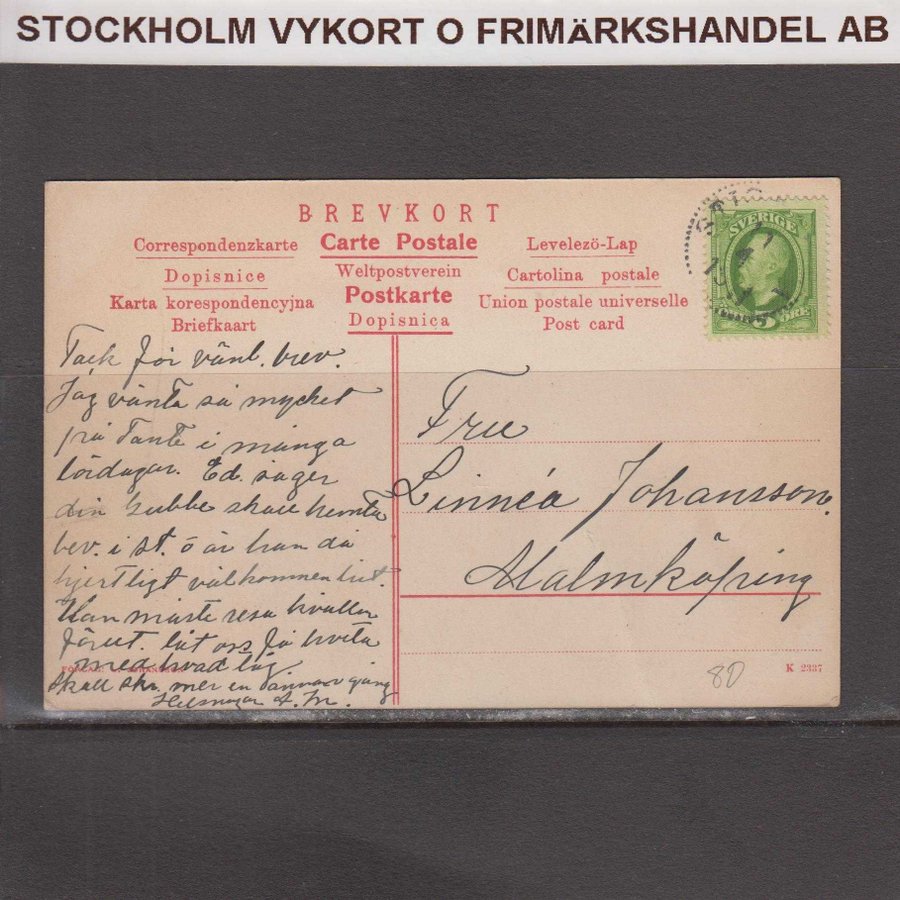 STOCKHOLM VYKORT O FRIMÄRKSHANDEL AB
BREVKORT
Correspondenzkarte Carte Postale Levelezö-Lap
Dopisnice Weltpostverein Cartolina postale
Karta korespondencyjna Postkarte Union postale universelle
Briefkaart Dopisnica Post card
SVERIGE
5 ÖRE
Tack för vänl. brev.
Jag vänta så mycket
på Tante i många
lördagar. Ed. säger
din gubbe skall hemta
bev. i st. ö är han då
hjertligt välkommen hit.
Han måste resa kvällen
förut. låt oss få
med hvad tåg
skall skr. mer en annan gång
Fru
Linnéa Johansson.
Malmköping
80
K 2337